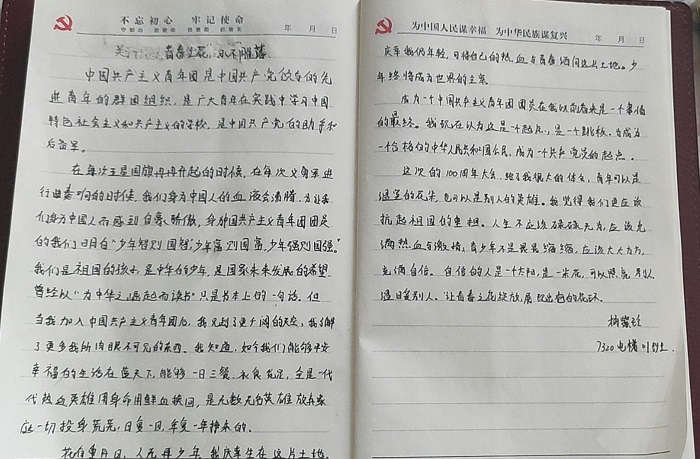 不忘初心 牢记使命
年 月 日
青春之花，永不凋落
中国共产主义青年团是中国共产党领导的先
进青年的群团组织，是广大青年在实践中学习中国
特色社会主义和共产主义的学校，是中国共产党的助手和
后备军。
在每次五星国旗冉冉升起的时候，在每次义勇军进
行曲奏响的时候，我们身为中国人的血液会沸腾，为让我
们身为中国人而感到自豪骄傲，身为中国共产主义青年团团员
的我们明白"少年智则国智，少年富则国富，少年强则国强。"
我们是祖国的孩子，是中华的少年，是国家未来发展的希望
曾经以"为中华之崛起而读书"只是书本上的一句话。但
当我加入中国共产主义青年团后，我见到了更广阔的天空，我了解
了更多我所肉眼不可见的东西。我知道，如今我们能够平安
幸福的生活在蓝天下，能够一日三餐，衣食充足，全是一代
代热血英雄用身命用鲜血换回，是无数无名英雄放弃家
庭一切投身荒芜，日复一日，年复一年换来的。
花有重开日，人无再少年，我庆幸生在这片土地，
为中国人民谋幸福 为中华民族谋复兴
年 月 日
庆幸我仍年轻，可将自己的热血与青春洒向这片土地。少
年终将成为世界的主宰。
成为一个中国共产主义青年团团员在我以前看来是一个事情
的最终。我现在认为这是一个起点，是一个跳板，为成为
一个合格的中华人民共和国公民，成为一个共产党党的起点。
这次的100周年大会，给了我很大的体会，青年可以是
温室的花朵，也可以是别人的英雄。我觉得我们更应该
扛起祖国的重担。人生不应该碌碌无为，应该充
满热血与激情，青少年不是畏畏缩缩，应该大大方方，
充满自信。自信的人是一个太阳，是一朵花，可以照亮别人
温暖别人。让青春之花绽放，展现出有的花环。
7320电梯